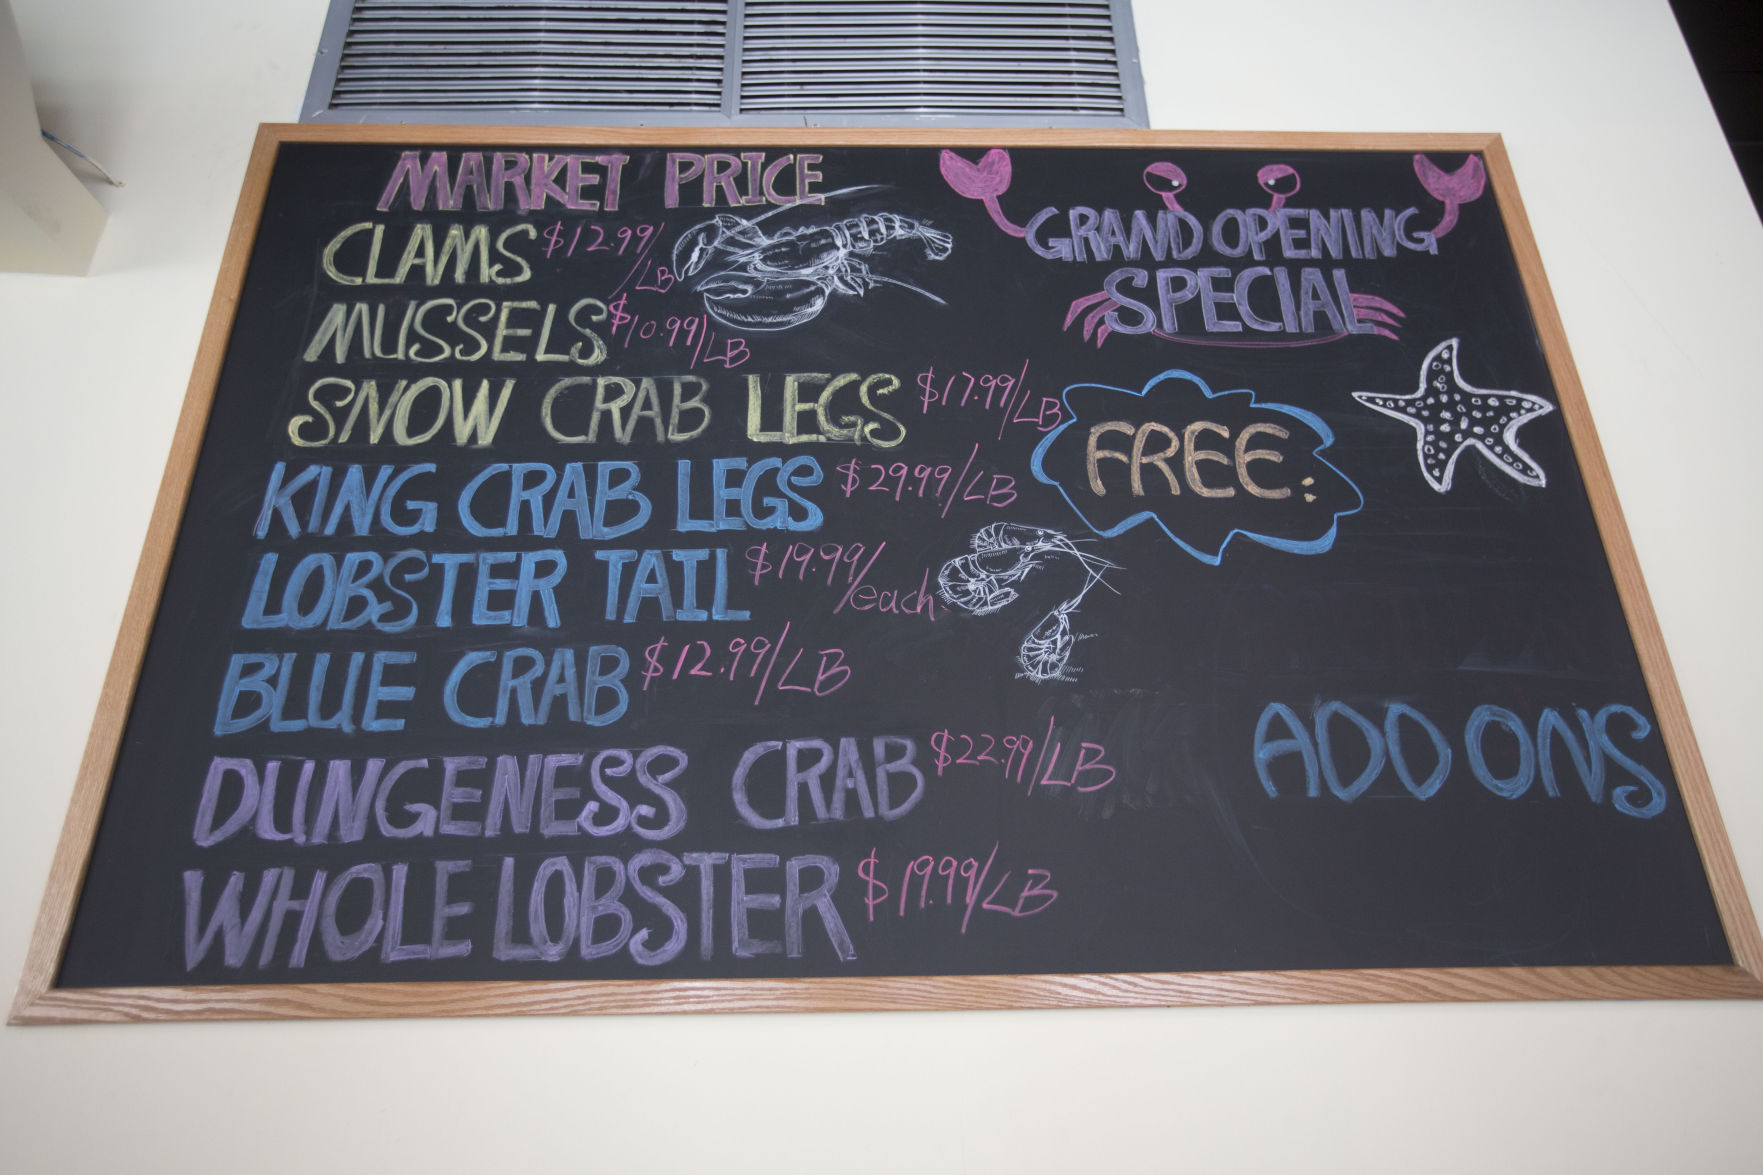 MARKET PRICE
CLAMS $12.99/LB
MUSSELS $10.99/LB
SNOW CRAB LEGS $17.99/LB
KING CRAB LEGS $29.99/LB
LOBSTER TAIL $19.99/each.
BLUE CRAB $12.99/LB
DUNGENESS CRAB $22.99/LB
WHOLE LOBSTER $19.99/LB
GRAND OPENING
SPECIAL
FREE:
ADD ONS